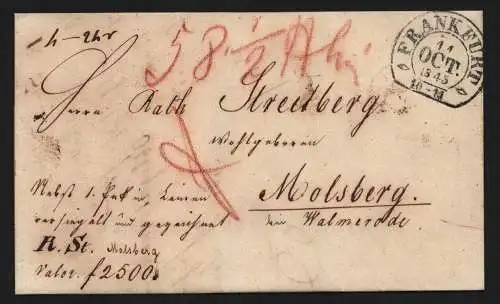 58 1/2
FRANKFURT
11
OCT.
1845
Herrn Rath Streitberg
Wohlgeboren
Molsberg.
bei Walmerode
Nebst 1. Pak in Leinen
versiegelt und gezeichnet
R. St. Molsberg
Valor. f 2500.